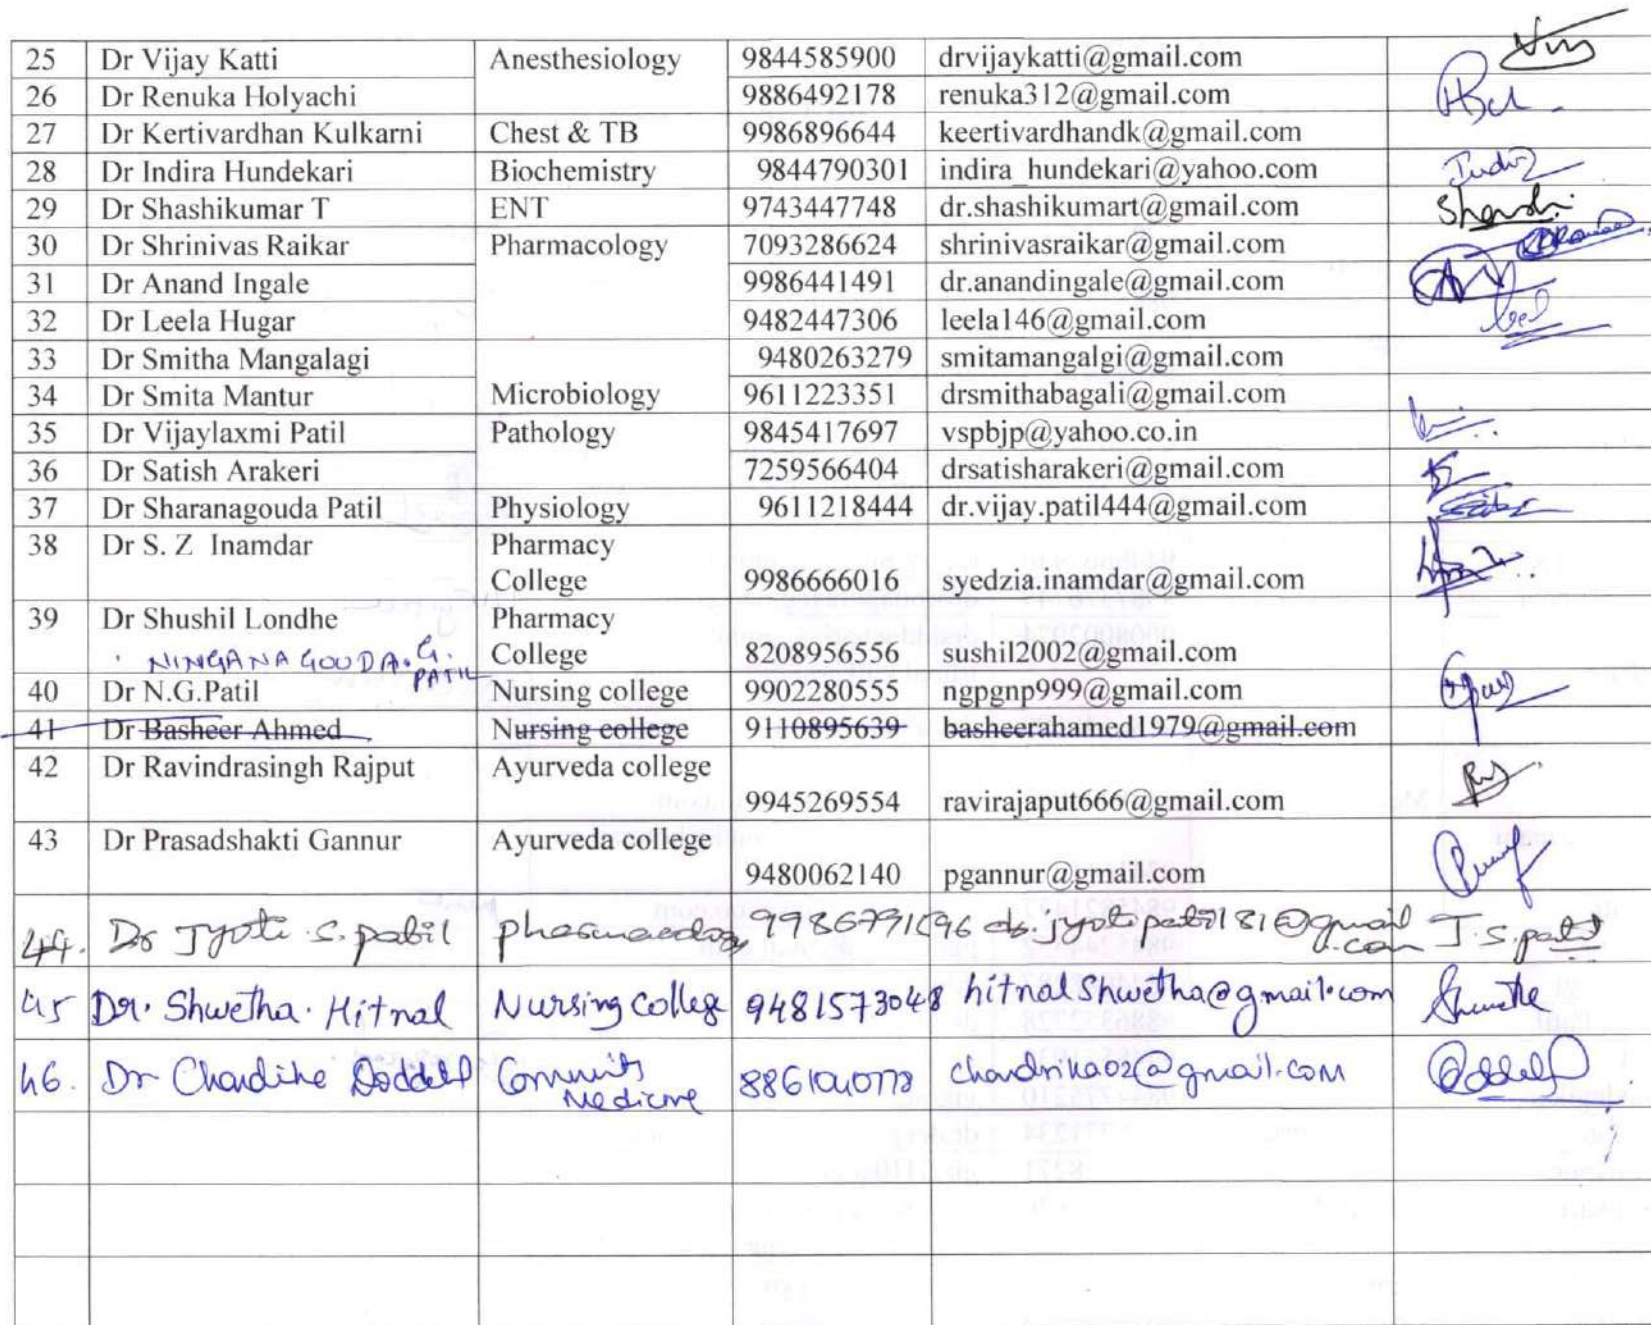 25 Dr Vijay Katti Anesthesiology 9844585900 drvijaykatti@gmail.com
26 Dr Renuka Holyachi 9886492178 renuka312@gmail.com
27 Dr Kertivardhan Kulkarni Chest & TB 9986896644 keertivardhandk@gmail.com
28 Dr Indira Hundekari Biochemistry 9844790301 indira_hundekari@yahoo.com
29 Dr Shashikumar T ENT 9743447748 dr.shashikumart@gmail.com
30 Dr Shrinivas Raikar Pharmacology 7093286624 shrinivasraikar@gmail.com
31 Dr Anand Ingale 9986441491 dr.anandingale@gmail.com
32 Dr Leela Hugar 9482447306 leela146@gmail.com
33 Dr Smitha Mangalagi 9480263279 smitamangalgi@gmail.com
34 Dr Smita Mantur Microbiology 9611223351 drsmithabagali@gmail.com
35 Dr Vijaylaxmi Patil Pathology 9845417697 vspbjp@yahoo.co.in
36 Dr Satish Arakeri 7259566404 drsatisharakeri@gmail.com
37 Dr Sharanagouda Patil Physiology 9611218444 dr.vijay.patil444@gmail.com
38 Dr S. Z Inamdar Pharmacy
College 9986666016 syedzia.inamdar@gmail.com
39 Dr Shushil Londhe Pharmacy
College 8208956556 sushil2002@gmail.com
NINGANAGOUDA.G.
PATIL
40 Dr N.G.Patil Nursing college 9902280555 ngpgnp999@gmail.com
41 Dr Basheer Ahmed Nursing college 9110895639 basheerahamed1979@gmail.com
42 Dr Ravindrasingh Rajput Ayurveda college
9945269554 ravirajaput666@gmail.com
43 Dr Prasadshakti Gannur Ayurveda college
9480062140 pgannur@gmail.com
44. Dr Jyoti S. patil pharmacology dr.jyotipatil81@gmail
.com J.S.patil
45 Dr. Shwetha. Hitnal Nursing College 9481573048 hitnalshwetha@gmail.com Shwetha
46. Dr Community chandrika02@gmail.com
Medicine